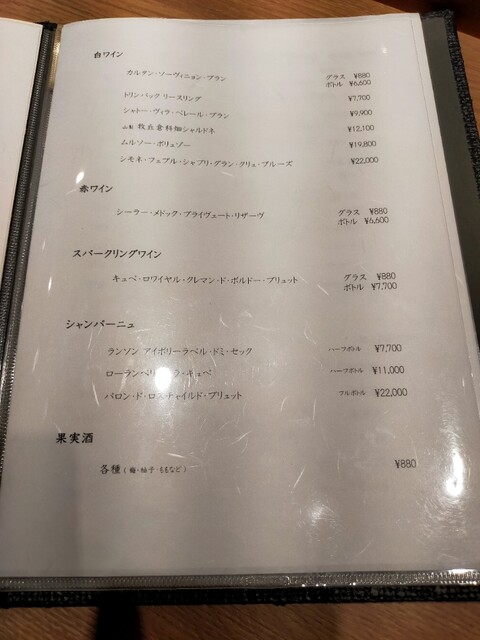 白ワイン
カルダン・ソーヴィニョン・ブラン グラス ¥880
ボトル ¥6,600
ドリンバック リースリング ¥7,700
シャトー・ヴィラ・ベレール・ブラン ¥9,900
山梨 牧丘倉科畑シャルドネ ¥12,100
ムルソー・ボリュゾー ¥19,800
シモネ・フェブル・シャブリ・グラン・クリュ・プルーズ ¥22,000
赤ワイン
シーラー・メドック・プライヴェート・リザーヴ グラス ¥880
ボトル ¥6,600
スパークリングワイン
キュベ・ロワイヤル・クレマン・ド・ボルドー・ブリュット グラス ¥880
ボトル ¥7,700
シャンパーニュ
ランソン アイボリーラベル・ドミ・セック ハーフボトル ¥7,700
ローランペリエ ラ・キュベ ハーフボトル ¥11,000
バロン・ド・ロスチャイルド・ブリュット フルボトル ¥22,000
果実酒
各種（梅・柚子・ももなど） ¥880